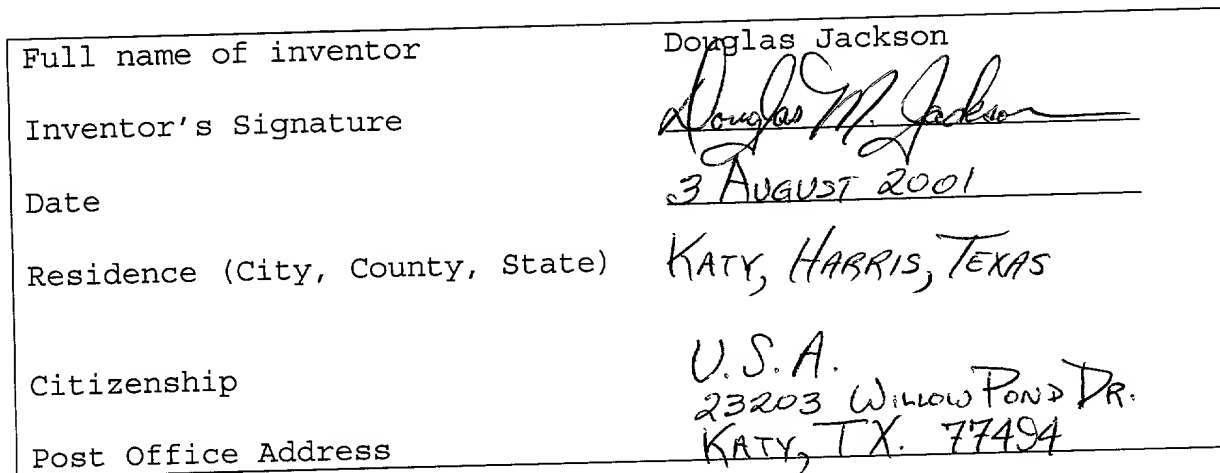 Full name of inventor Douglas Jackson
Inventor's Signature Douglas M. Jackson
Date 3 AUGUST 2001
Residence (City, County, State) KATY, HARRIS, TEXAS
Citizenship U.S.A.
23203 WILLOW POND DR.
Post Office Address KATY, TX. 77494